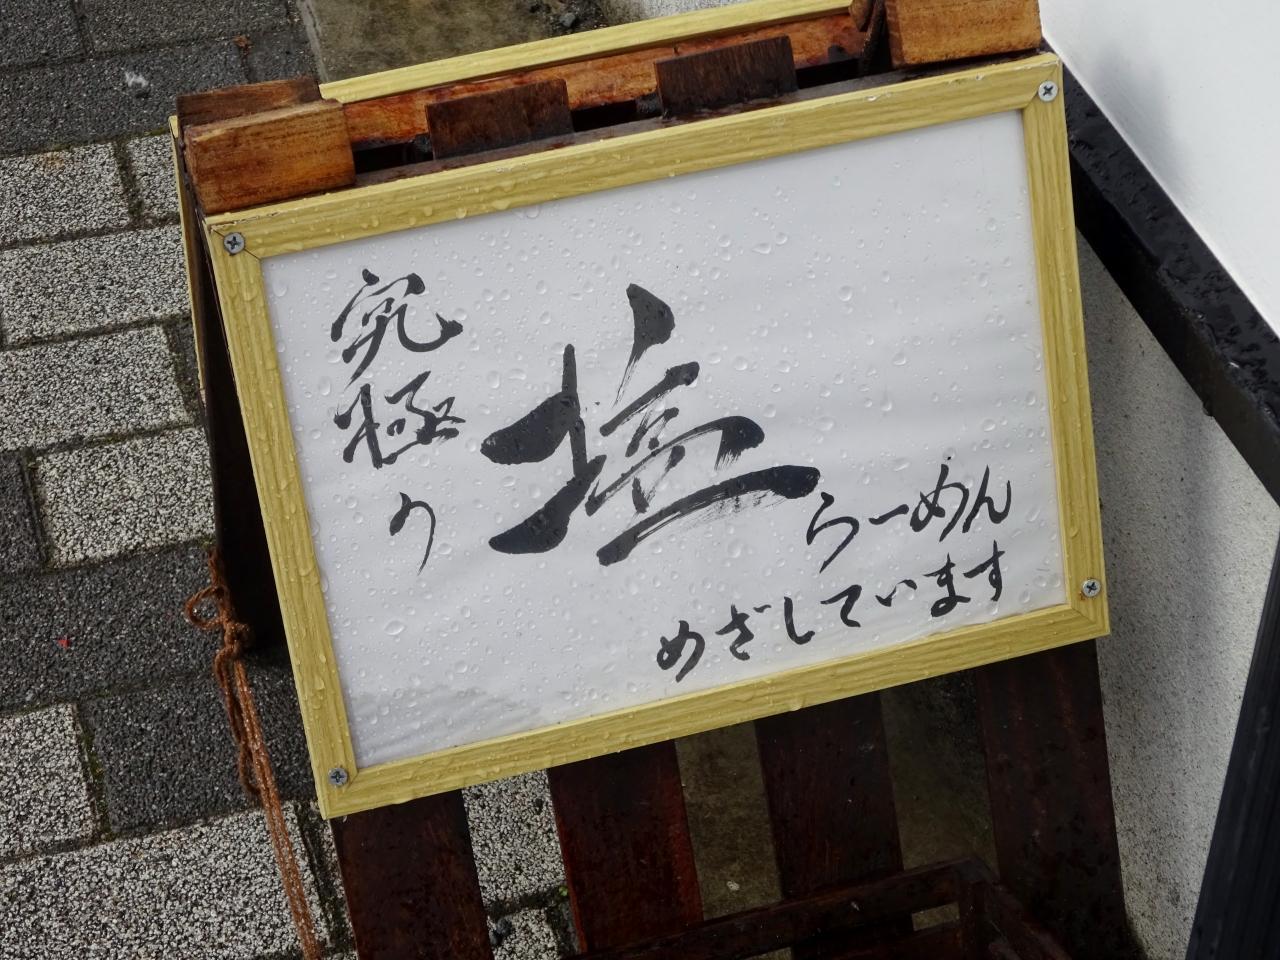 究極の
塩
らーめん
めざしています